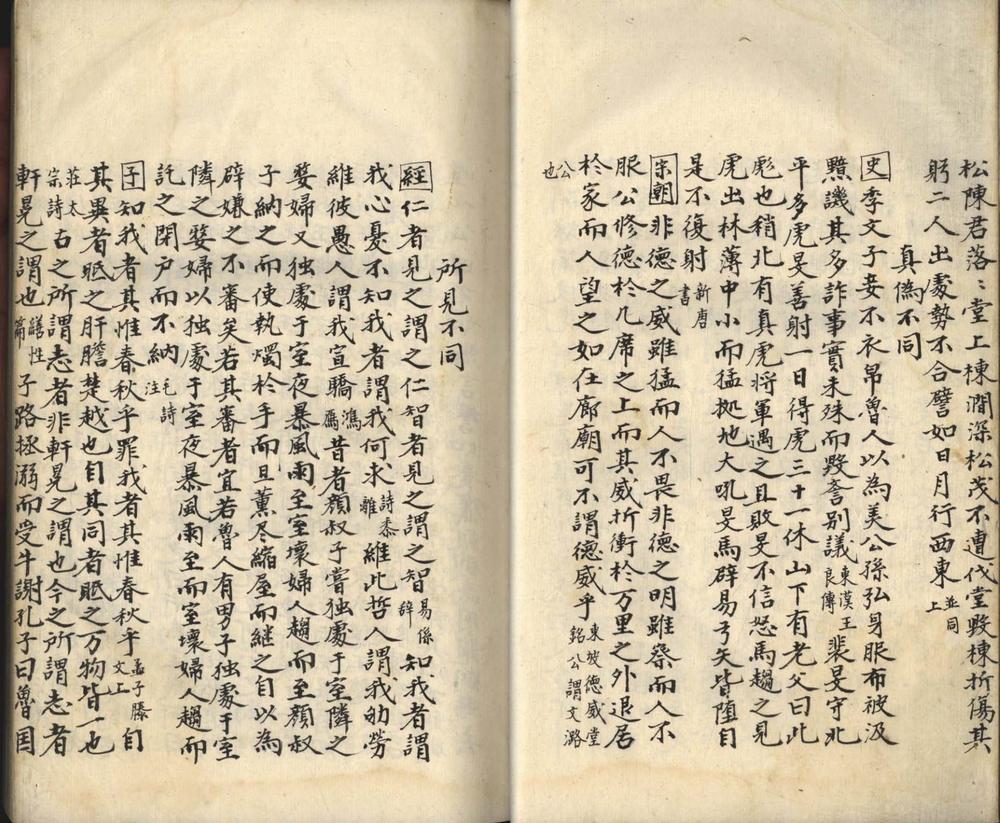 松陳君落〻堂上棟澗深松茂不遭伐堂毁棟折傷其
躬二人出處勢不合譬如日月行西東並同上
真偽不同
史季文子妾不衣帛魯人以為美公孫弘身服布被汲
黯譏其多詐事實未殊而毀誉别議東漢王良傳裴旻守北
平多虎旻善射一日得虎三十一休山下有老父曰此
彪也稍北有真虎将軍遇之且敗旻不信怒馬趨之見
虎出林薄中小而猛拠地大吼旻馬辟易弓矢皆堕自
是不復射新唐書
宋朝非德之威雖猛而人不畏非德之明雖察而人不
服公修德於几席之上而其威折衝於万里之外退居
於家而人望之如在廊廟可不謂德威乎東坡德威堂銘公謂文潞
公也
所見不同
経仁者見之謂之仁智者見之謂之智易係辞知我者謂
我心憂不知我者謂我何求詩黍離維此哲人謂我劬勞
維彼愚人謂我宣驕鴻鴈昔者顔叔子嘗独處于室隣之
嫠婦又独處于室夜暴風雨至室壊婦人趨而至顔叔
子納之而使執燭於手而旦薫尽縮屋而継之自以為
辟嫌之不審矣若其審者宜若魯人有男子独處于室
隣之嫠婦以独處于室夜暴風雨至而室壊婦人趨而
託之閉户而不納毛詩注
子知我者其惟春秋乎罪我者其惟春秋乎孟子滕文上自
其異者眂之肝膽楚越也自其同者眂之万物皆一也
莊太宗詩古之所謂志者非軒冕之謂也今之所謂志者
軒冕之謂也繕性篇子路拯溺而受牛謝孔子曰魯国